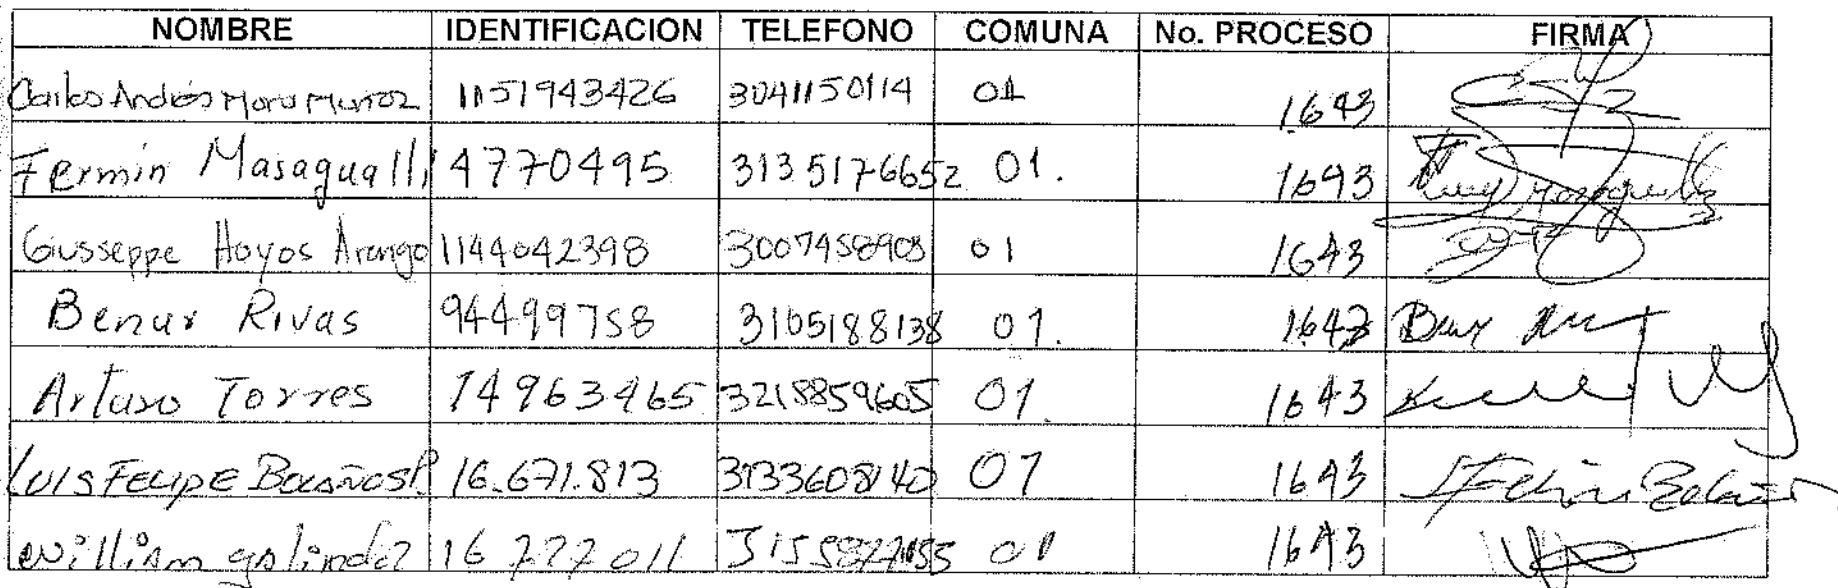 NOMBRE IDENTIFICACION TELEFONO COMUNA No. PROCESO FIRMA
Carlos Andrés Mora Muñoz 1151943426 3041150114 01 1643
Fermin Masagualli 4770495 3135176652 01. 1643
Giusseppe Hoyos Arango 1144042398 3007458903 01 1643
Benur Rivas 94499758 3105188138 01. 1643
Arturo Torres 14963465 3218859605 01. 1643
LUIS FELIPE BOLAÑOS P. 16.671.813 3133608140 01 1643
William galindez 16777011 01 1643